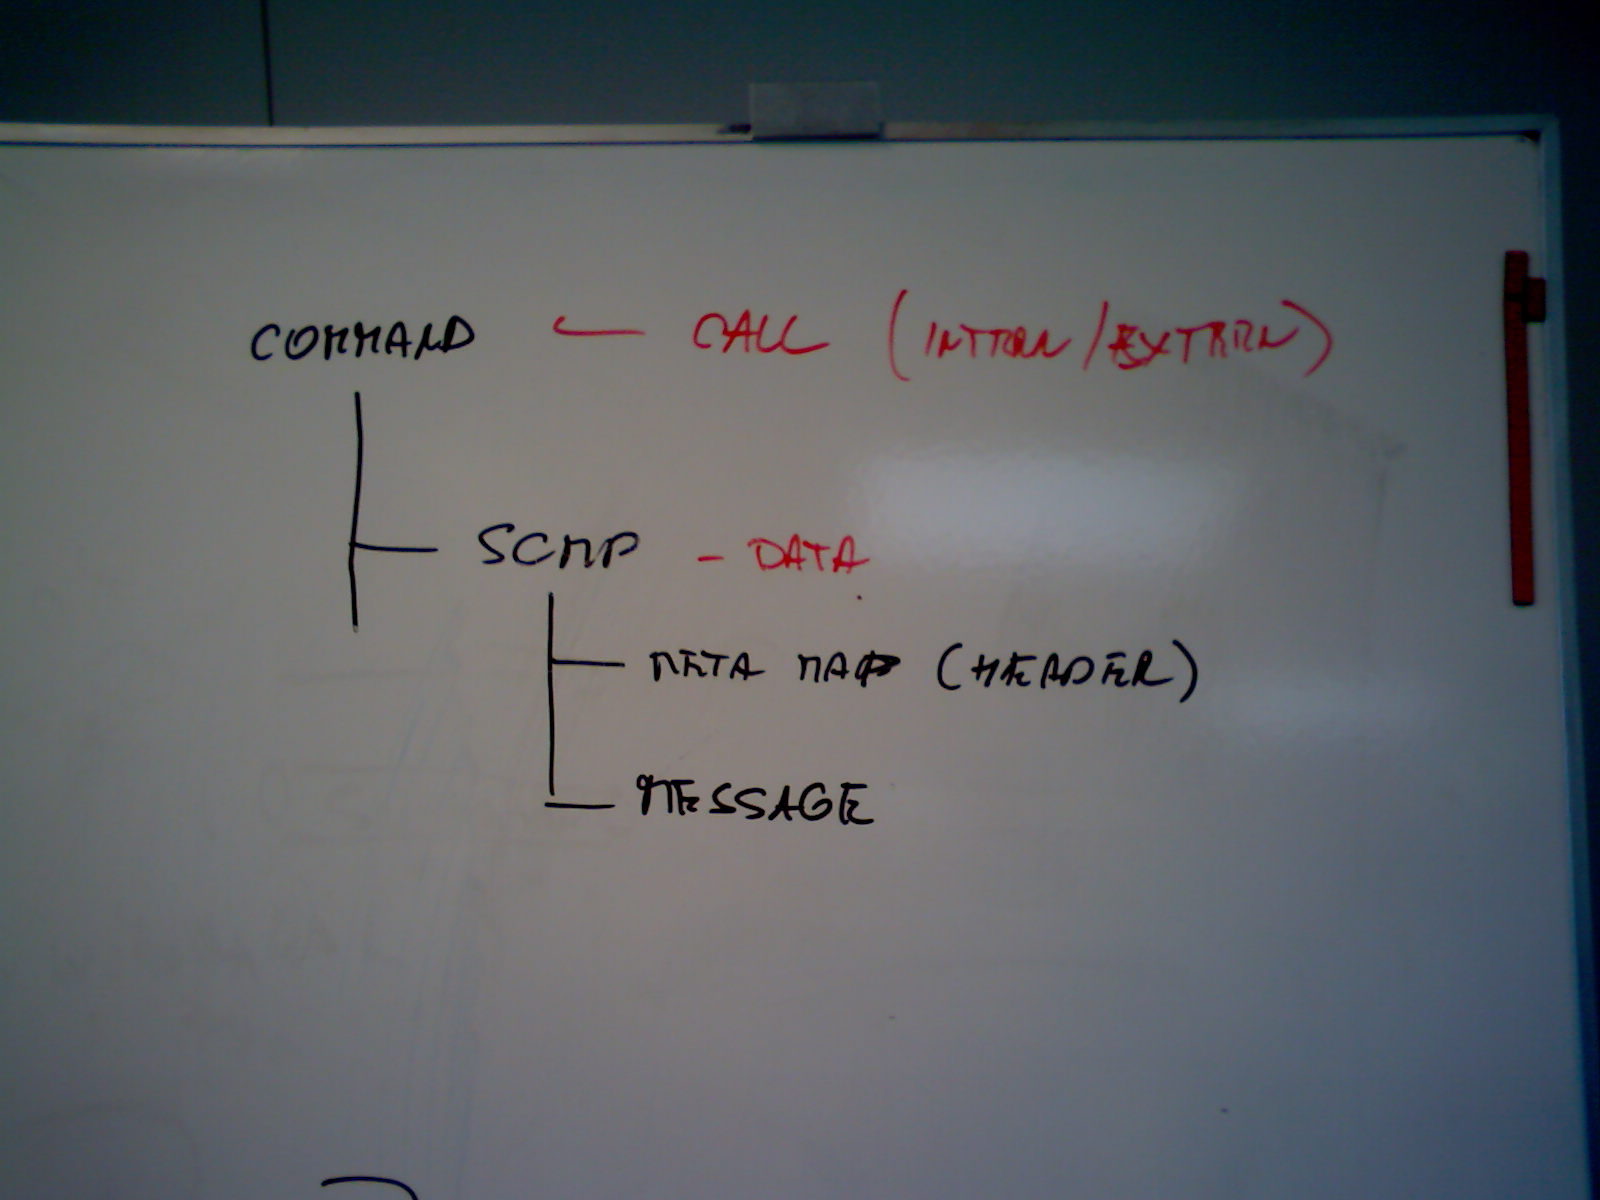 COMMAND — CALL (INTERN/EXTERN)
SCMP - DATA
META MAP (HEADER)
MESSAGE